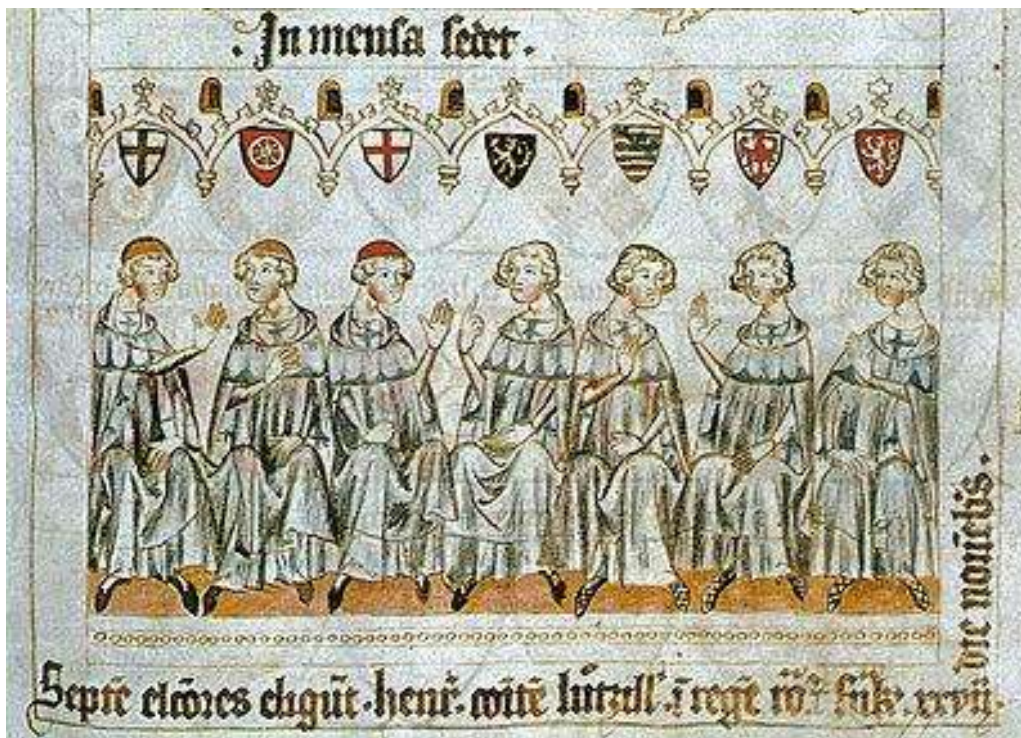 . In mensa sedet .
Septē elc̄ores eligūt . henr̄ . cōitē luͦtzill' . ī regē rō . xxvii .
die nouēbis .